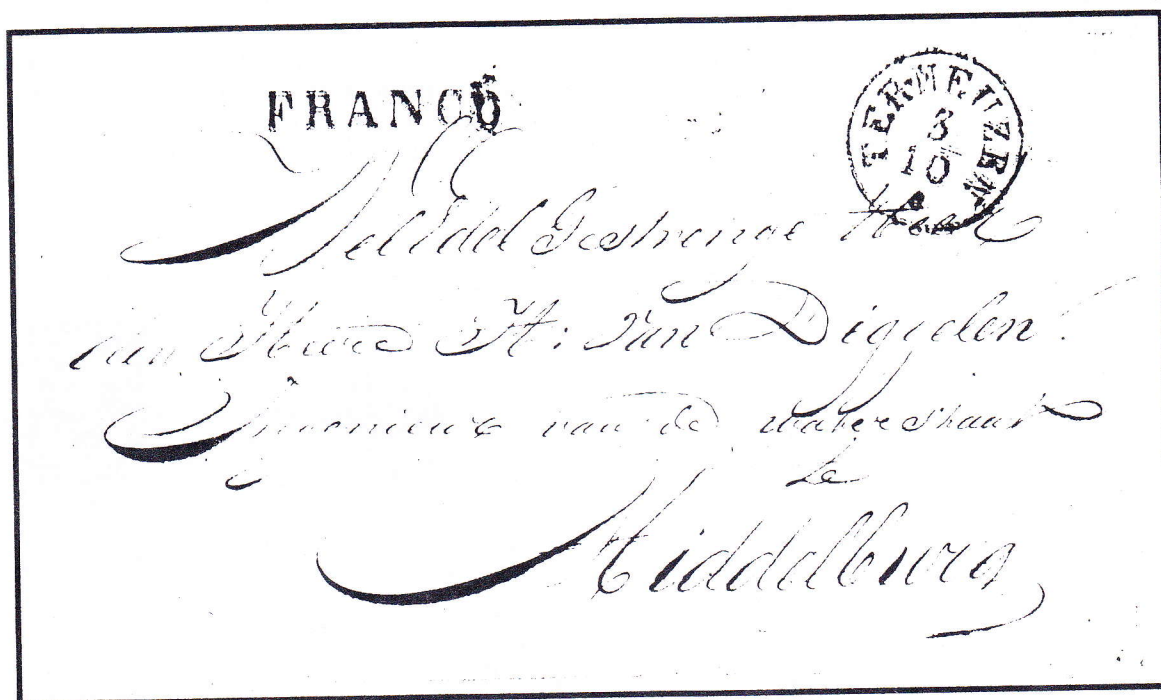 FRANCO
TERNEUZEN
3
10
WelEdel Gestrenge Heer
van Diggelen
Ingenieur van de waterstaat
te
Middelburg